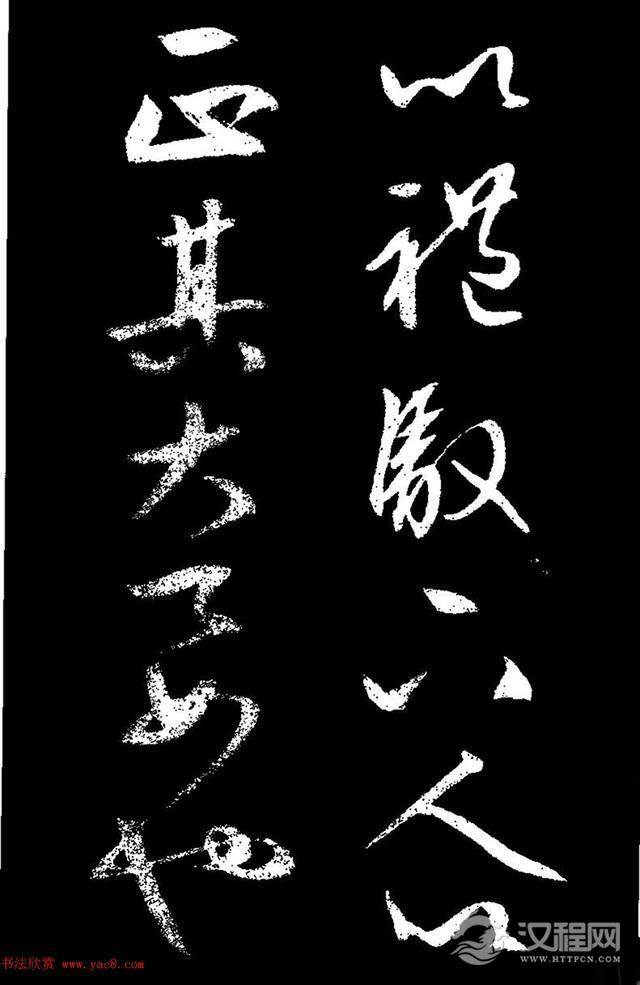 以禮馭下人以
正其大要也
书法欣赏 www.yac8.com
汉程网
WWW.HTTPCN.COM